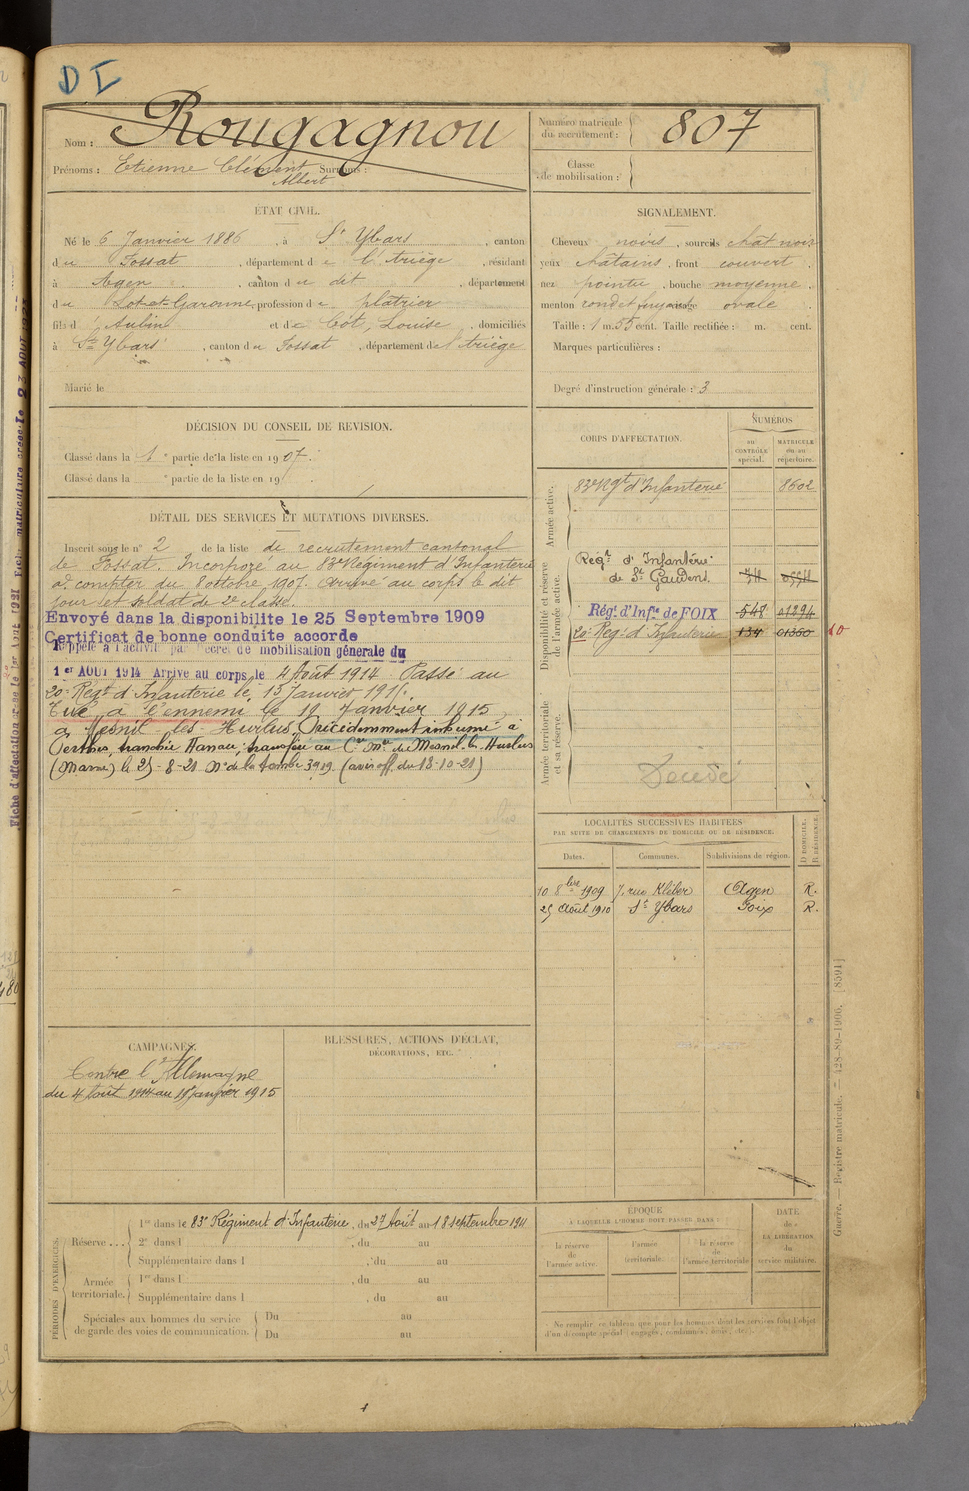 D I
Nom : Rougagnou
Prénoms : Etienne Clément Surnoms :
Albert
Numéro matricule
du recrutement : 807
Classe
de mobilisation :
ETAT CIVIL.
Né le 6 Janvier 1886, à St Ybars, canton
du Fossat, département de l'Ariège, résidant
à Agen, canton du dit, département
du Lot-et-Garonne, profession de platrier
fils d' Aubin et de Cot, Louise, domiciliés
à St Ybars, canton du Fossat, département de l'Ariège
Marié le
SIGNALEMENT.
Cheveux noirs, sourcils chât noir
yeux châtains, front couvert
nez pointu, bouche moyenne
menton rond et fuyant visage ovale
Taille : 1 m. 55 cent. Taille rectifiée : m. cent.
Marques particulières :
Degré d'instruction générale : 3
DÉCISION DU CONSEIL DE REVISION.
Classé dans la 1e partie de la liste en 1907.
Classé dans la e partie de la liste en 19
DÉTAIL DES SERVICES ET MUTATIONS DIVERSES.
Inscrit sous le n° 2 de la liste de recrutement cantonal
de Fossat. Incorporé au 83e Régiment d'Infanterie
à compter du 8 octobre 1907. Arrivé au corps le dit
jour et soldat de 2e classe.
Envoyé dans la disponibilite le 25 Septembre 1909
Certificat de bonne conduite accorde
Rappelé à l'activité par Décret de mobilisation générale du
1er AOUT 1914 Arrivé au corps le 4 Août 1914 Passé au
20e Regt d'Infanterie le 13 Janvier 1915.
Tué à l'ennemi le 19 Janvier 1915
à Mesnil-les-Hurlus. Précédemment inhumé à
Perthes, tranchée Hanau, transféré au Cre Mre de Mesnil-les-Hurlus
(Marne) le 25-8-21 No de la tombe 3919. (avis off. du 18-10-21)
CORPS D'AFFECTATION.
NUMÉROS
au
CONTRÔLE
spécial.
MATRICULE
ou au
répertoire.
Armée active.
83e Rgt d'Infanterie 8602
Disponibilité et réserve
de l'armée active.
Régt d'Infanterie
de St Gaudens.
Régt d'Infie de FOIX 548 01294
20e Regt d'Infanterie 134 01360
10
Armée territoriale
et sa réserve.
Décédé
LOCALITÉS SUCCESSIVES HABITÉES
PAR SUITE DE CHANGEMENTS DE DOMICILE OU DE RÉSIDENCE.
D DOMICILE.
R RÉSIDENCE.
Dates. Communes. Subdivisions de région.
10 8bre 1909 7, rue Kléber Agen R.
25 Août 1910 St Ybars Foix R.
CAMPAGNES.
Contre l'Allemagne
du 4 Août 1914 au 19 Janvier 1915
BLESSURES, ACTIONS D'ÉCLAT,
DÉCORATIONS, ETC.
PÉRIODES D'EXERCICES.
Réserve . . . 1re dans le 83e Régiment d'Infanterie, du 27 Août au 18 Septembre 1911
2e dans l , du au
Supplémentaire dans l , du au
Armée
territoriale. 1re dans l , du au
Supplémentaire dans l , du au
Spéciales aux hommes du service
de garde des voies de communication. Du au
Du au
ÉPOQUE
À LAQUELLE L'HOMME DOIT PASSER DANS :
la réserve
de
l'armée active.
l'armée
territoriale.
la réserve
de
l'armée territoriale
DATE
de
LA LIBÉRATION
du
service militaire.
Ne remplir ce tableau que pour les hommes dont les services font l'objet
d'un décompte spécial (engagés, condamnés, omis, etc.).
Guerre. — Registre matricule. — 428-89-1906. [8591]